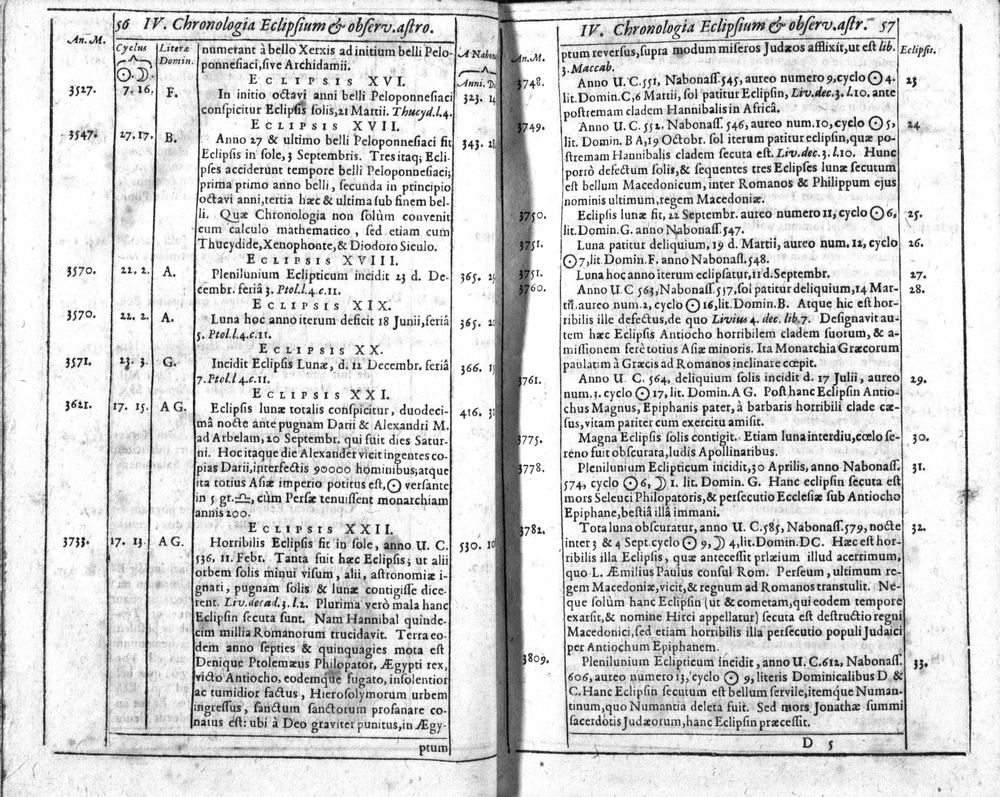 56 IV. Chronologia Eclipsium & observ. astro.
An. M. Cyclus ☉☽. Literæ Domin. Anni. D
numerant à bello Xerxis ad initium belli Pelo-
ponnesiaci, sive Archidamii.
ECLIPSIS XVI.
3527. 7. 16. F. In initio octavi anni belli Peloponnesiaci 323. 14
conspicitur Eclipsis solis, 21 Martii. Thucyd. l. 4.
ECLIPSIS XVII.
3547. 27. 17. B. Anno 27 & ultimo belli Peloponnesiaci fit 343.
Eclipsis in sole, 3 Septembris. Tres itaq; Ecli-
pses acciderunt tempore belli Peloponnesiaci;
prima primo anno belli, secunda in principio
octavi anni, tertia hæc & ultima sub finem bel-
li. Quæ Chronologia non solùm convenit
cum calculo mathematico, sed etiam cum
Thucydide, Xenophonte, & Diodoro Siculo.
ECLIPSIS XVIII.
3570. 22. 2. A. Plenilunium Eclipticum incidit 23 d. De- 365.
cembr. feriâ 3. Ptol. l. 4. c. 11.
ECLIPSIS XIX.
3570. 22. 2. A. Luna hoc anno iterum deficit 18 Junii, feriâ 365.
5. Ptol. l. 4. c. 11.
ECLIPSIS XX.
3571. 23. 3. G. Incidit Eclipsis Lunæ, d. 12 Decembr. feriâ 366.
7. Ptol. l 4. c. 11.
ECLIPSIS XXI.
3621. 17. 15. A G. Eclipsis lunæ totalis conspicitur, duodeci- 416.
mâ nocte ante pugnam Darii & Alexandri M.
ad Arbelam, 20 Septembr. qui fuit dies Satur-
ni. Hoc itaque die Alexander vicit ingentes co-
pias Darii, interfectis 90000 hominibus; atque
ita totius Asiæ imperio potitus est, ☉ versante
in 5 gr. ♎, cùm Persæ tenuissent monarchiam
annis 200.
ECLIPSIS XXII.
3733. 17. 13. A G. Horribilis Eclipsis fit in sole, anno U. C. 530. 10
536, 11. Febr. Tanta fuit hæc Eclipsis; ut alii
orbem solis minui visum, alii, astronomiæ i-
gnari, pugnam solis & lunæ contigisse dice-
rent. Liv. decad. 3. l. 2. Plurima verò mala hanc
Eclipsin secuta sunt. Nam Hannibal quinde-
cim millia Romanorum trucidavit. Terra eo-
dem anno septies & quinquagies mota est
Denique Ptolemæus Philopator, Ægypti rex,
victo Antiocho, eodemque fugato, insolentior
ac tumidior factus, Hierosolymorum urbem
ingressus, sanctum sanctorum profanare co-
natus est: ubi à Deo graviter punitus, in Ægy-
ptum
IV. Chronologia Eclipsium & observ. astr. 57
An. M. Eclipsis.
ptum reversus, supra modum miseros Judæos afflixit, ut est lib.
3. Maccab.
3748. Anno U. C. 551, Nabonass. 545, aureo numero 9, cyclo ☉ 4. 23
lit. Domin. C, 6 Martii, sol patitur Eclipsin, Liv. dec. 3. l. 10. ante
postremam cladem Hannibalis in Africâ.
3749. Anno U. C. 552. Nabonass. 546, aureo num. 10, cyclo ☉ 5, 24
lit. Domin. B A, 19 Octobr. sol iterum patitur eclipsin, quæ po-
stremam Hannibalis cladem secuta est. Liv. dec. 3. l. 10. Hunc
porrò defectum solis, & sequentes tres Eclipses lunæ secutum
est bellum Macedonicum, inter Romanos & Philippum ejus
nominis ultimum, regem Macedoniæ.
3750. Eclipsis lunæ fit, 22 Septembr. aureo numero 11, cyclo ☉ 6, 25.
lit. Domin. G. anno Nabonass. 547.
3751. Luna patitur deliquium, 19 d. Martii, aureo num. 12, cyclo 26.
☉ 7, lit Domin. F. anno Nabonass. 548.
3751. Luna hoc anno iterum eclipsatur, 11 d. Septembr. 27.
3760. Anno U. C 563, Nabonass. 557, sol patitur deliquium, 14 Mar- 28.
tii, aureo num. 2, cyclo ☉ 16, lit. Domin. B. Atque hic est hor-
ribilis ille defectus, de quo Livius 4. dec. lib. 7. Designavit au-
tem hæc Eclipsis Antiocho horribilem cladem suorum, & a-
missionem ferè totius Asiæ minoris. Ita Monarchia Græcorum
paulatim à Græcis ad Romanos inclinare cœpit.
3761. Anno U. C. 564, deliquium solis incidit d. 17 Julii, aureo 29.
num. 3. cyclo ☉ 17, lit. Domin. A G. Post hanc Eclipsin Antio-
chus Magnus, Epiphanis pater, à barbaris horribili clade cæ-
sus, vitam pariter cum exercitu amisit.
3775. Magna Eclipsis solis contigit. Etiam luna interdiu, cœlo se- 30.
reno fuit obscurata, ludis Apollinaribus.
3778. Plenilunium Eclipticum incidit, 30 Aprilis, anno Nabonass. 31.
574, cyclo ☉ 6, ☽ 1. lit. Domin. G. Hanc eclipsin secuta est
mors Seleuci Philopatoris, & persecutio Ecclesiæ sub Antiocho
Epiphane, bestiâ illâ immani.
3782. Tota luna obscuratur, anno U. C. 585, Nabonass. 579, nocte 32.
inter 3 & 4 Sept. cyclo ☉ 9, ☽ 4, lit. Domin. DC. Hæc est hor-
ribilis illa Eclipsis, quæ antecessit prælium illud acerrimum,
quo L. Æmilius Paulus consul Rom. Perseum, ultimum re-
gem Macedoniæ, vicit, & regnum ad Romanos transtulit. Ne-
que solùm hanc Eclipsin (ut & cometam, qui eodem tempore
exarsit, & nomine Hirci appellatur) secuta est destructio regni
Macedonici, sed etiam horribilis illa persecutio populi Judaici
per Antiochum Epiphanem.
3809. Plenilunium Eclipticum incidit, anno U. C. 612, Nabonass. 33.
606, aureo numero 13, cyclo ☉ 9, literis Dominicalibus D &
C. Hanc Eclipsin secutum est bellum servile, itemque Numan-
tinum, quo Numantia deleta fuit. Sed mors Jonathæ summi
sacerdotis Judæorum, hanc Eclipsin præcessit.
D 5